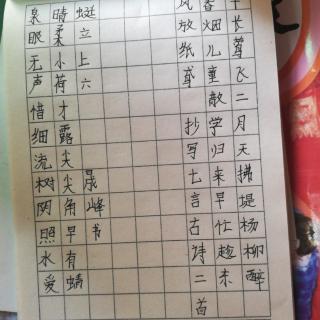 长莺飞二月天拂堤杨柳醉
烟儿童散学归来早忙趁东
风放纸鸢 抄写七言古诗二首
蜓立上头 晟峰书
晴柔小荷才露尖尖角早有蜻
泉眼无声惜细流树阴照水爱